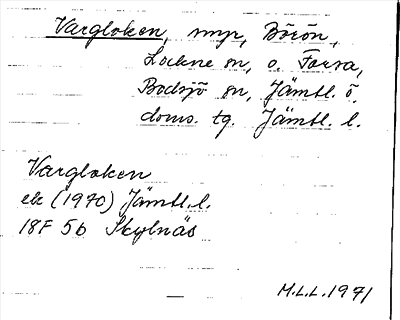 Vargloken, myr, Börön,
Lockne sn, o. Forsa,
Bodsjö sn, Jämtl. ö.
doms. tg. Jämtl. l.
Vargloken
ek (1970) Jämtl.l.
18F 5b Skylnäs
M.L.L. 1971